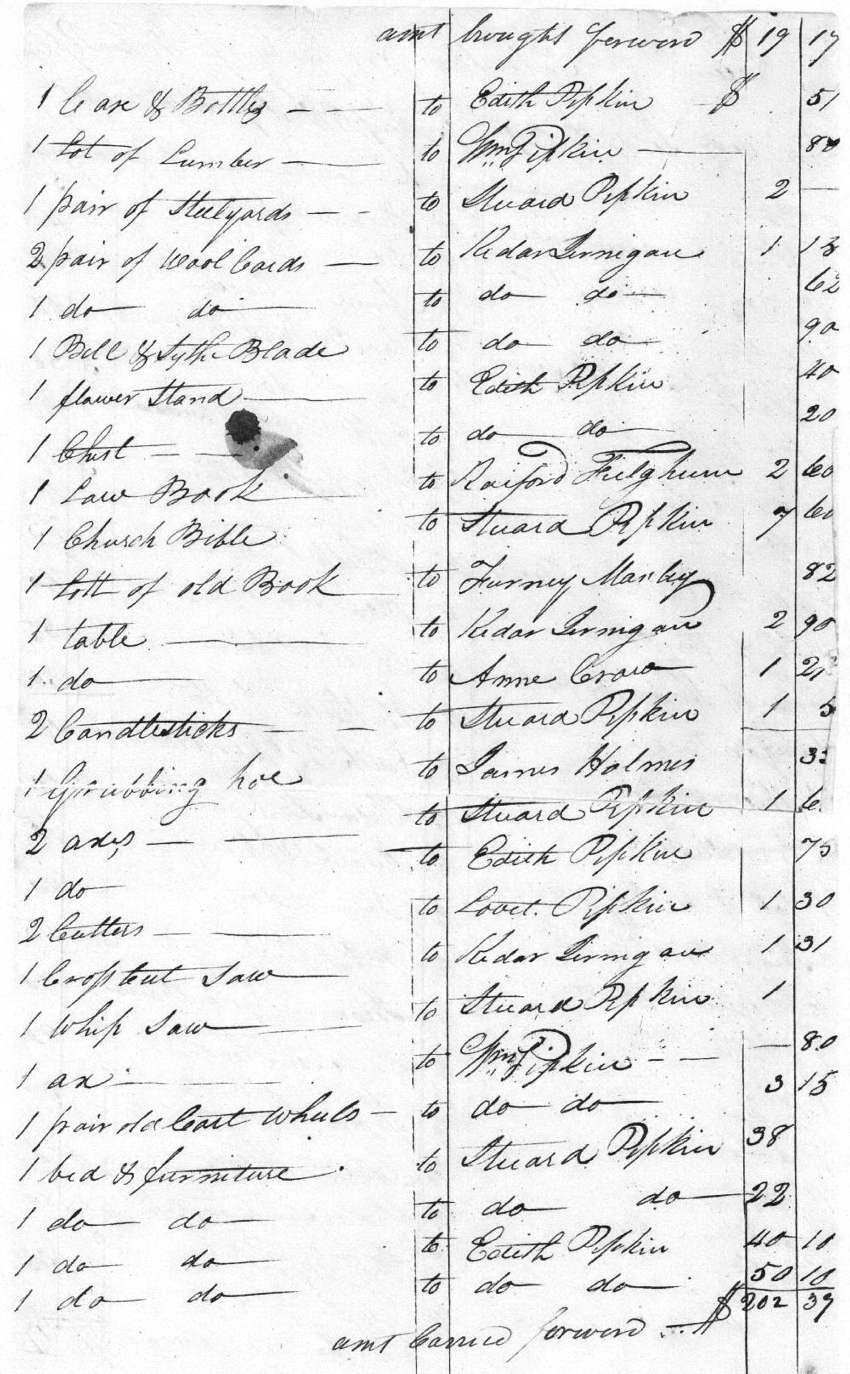 amt brought forward $ 19 17
1 Case & Bottles to Edith Pipkin $ 51
1 Lot of Lumber to Wm. Pipkin 80
1 pair of Steelyards to Stuard Pipkin 2
2 pair of wool Cards to Kedar Jernigan 1 13
1 do do to do do 62
1 Bell & Sythe Blade to do do 90
1 flower Stand to Edith Pipkin 40
1 Chest to do do 20
1 Law Book to Raiford Fulghum 2 60
1 Church Bible to Stuard Pipkin 7 60
1 Lott of old Book to Furney Manley 82
1 table to Kedar Jernigan 2 90
1 do to Anne Crow 1
2 Candlesticks to Stuard Pipkin 1 5
1 Grubbing hoe to James Holmes
2 axes to Stuard Pipkin 1
1 do to Edith Pipkin 75
2 Cutters to Lovet. Pipkin 1 30
1 Cross Cut Saw to Kedar Jernigan 1 31
1 Whip Saw to Stuard Pipkin 1
1 ax to Wm. Pipkin 80
1 pair old Cart Wheels to do do 3 15
1 bed & furniture to Stuard Pipkin 38
1 do do to do do 22
1 do do to Edith Pipkin 40 10
1 do do to do do 50 10
amt Carried forward $ 202 39